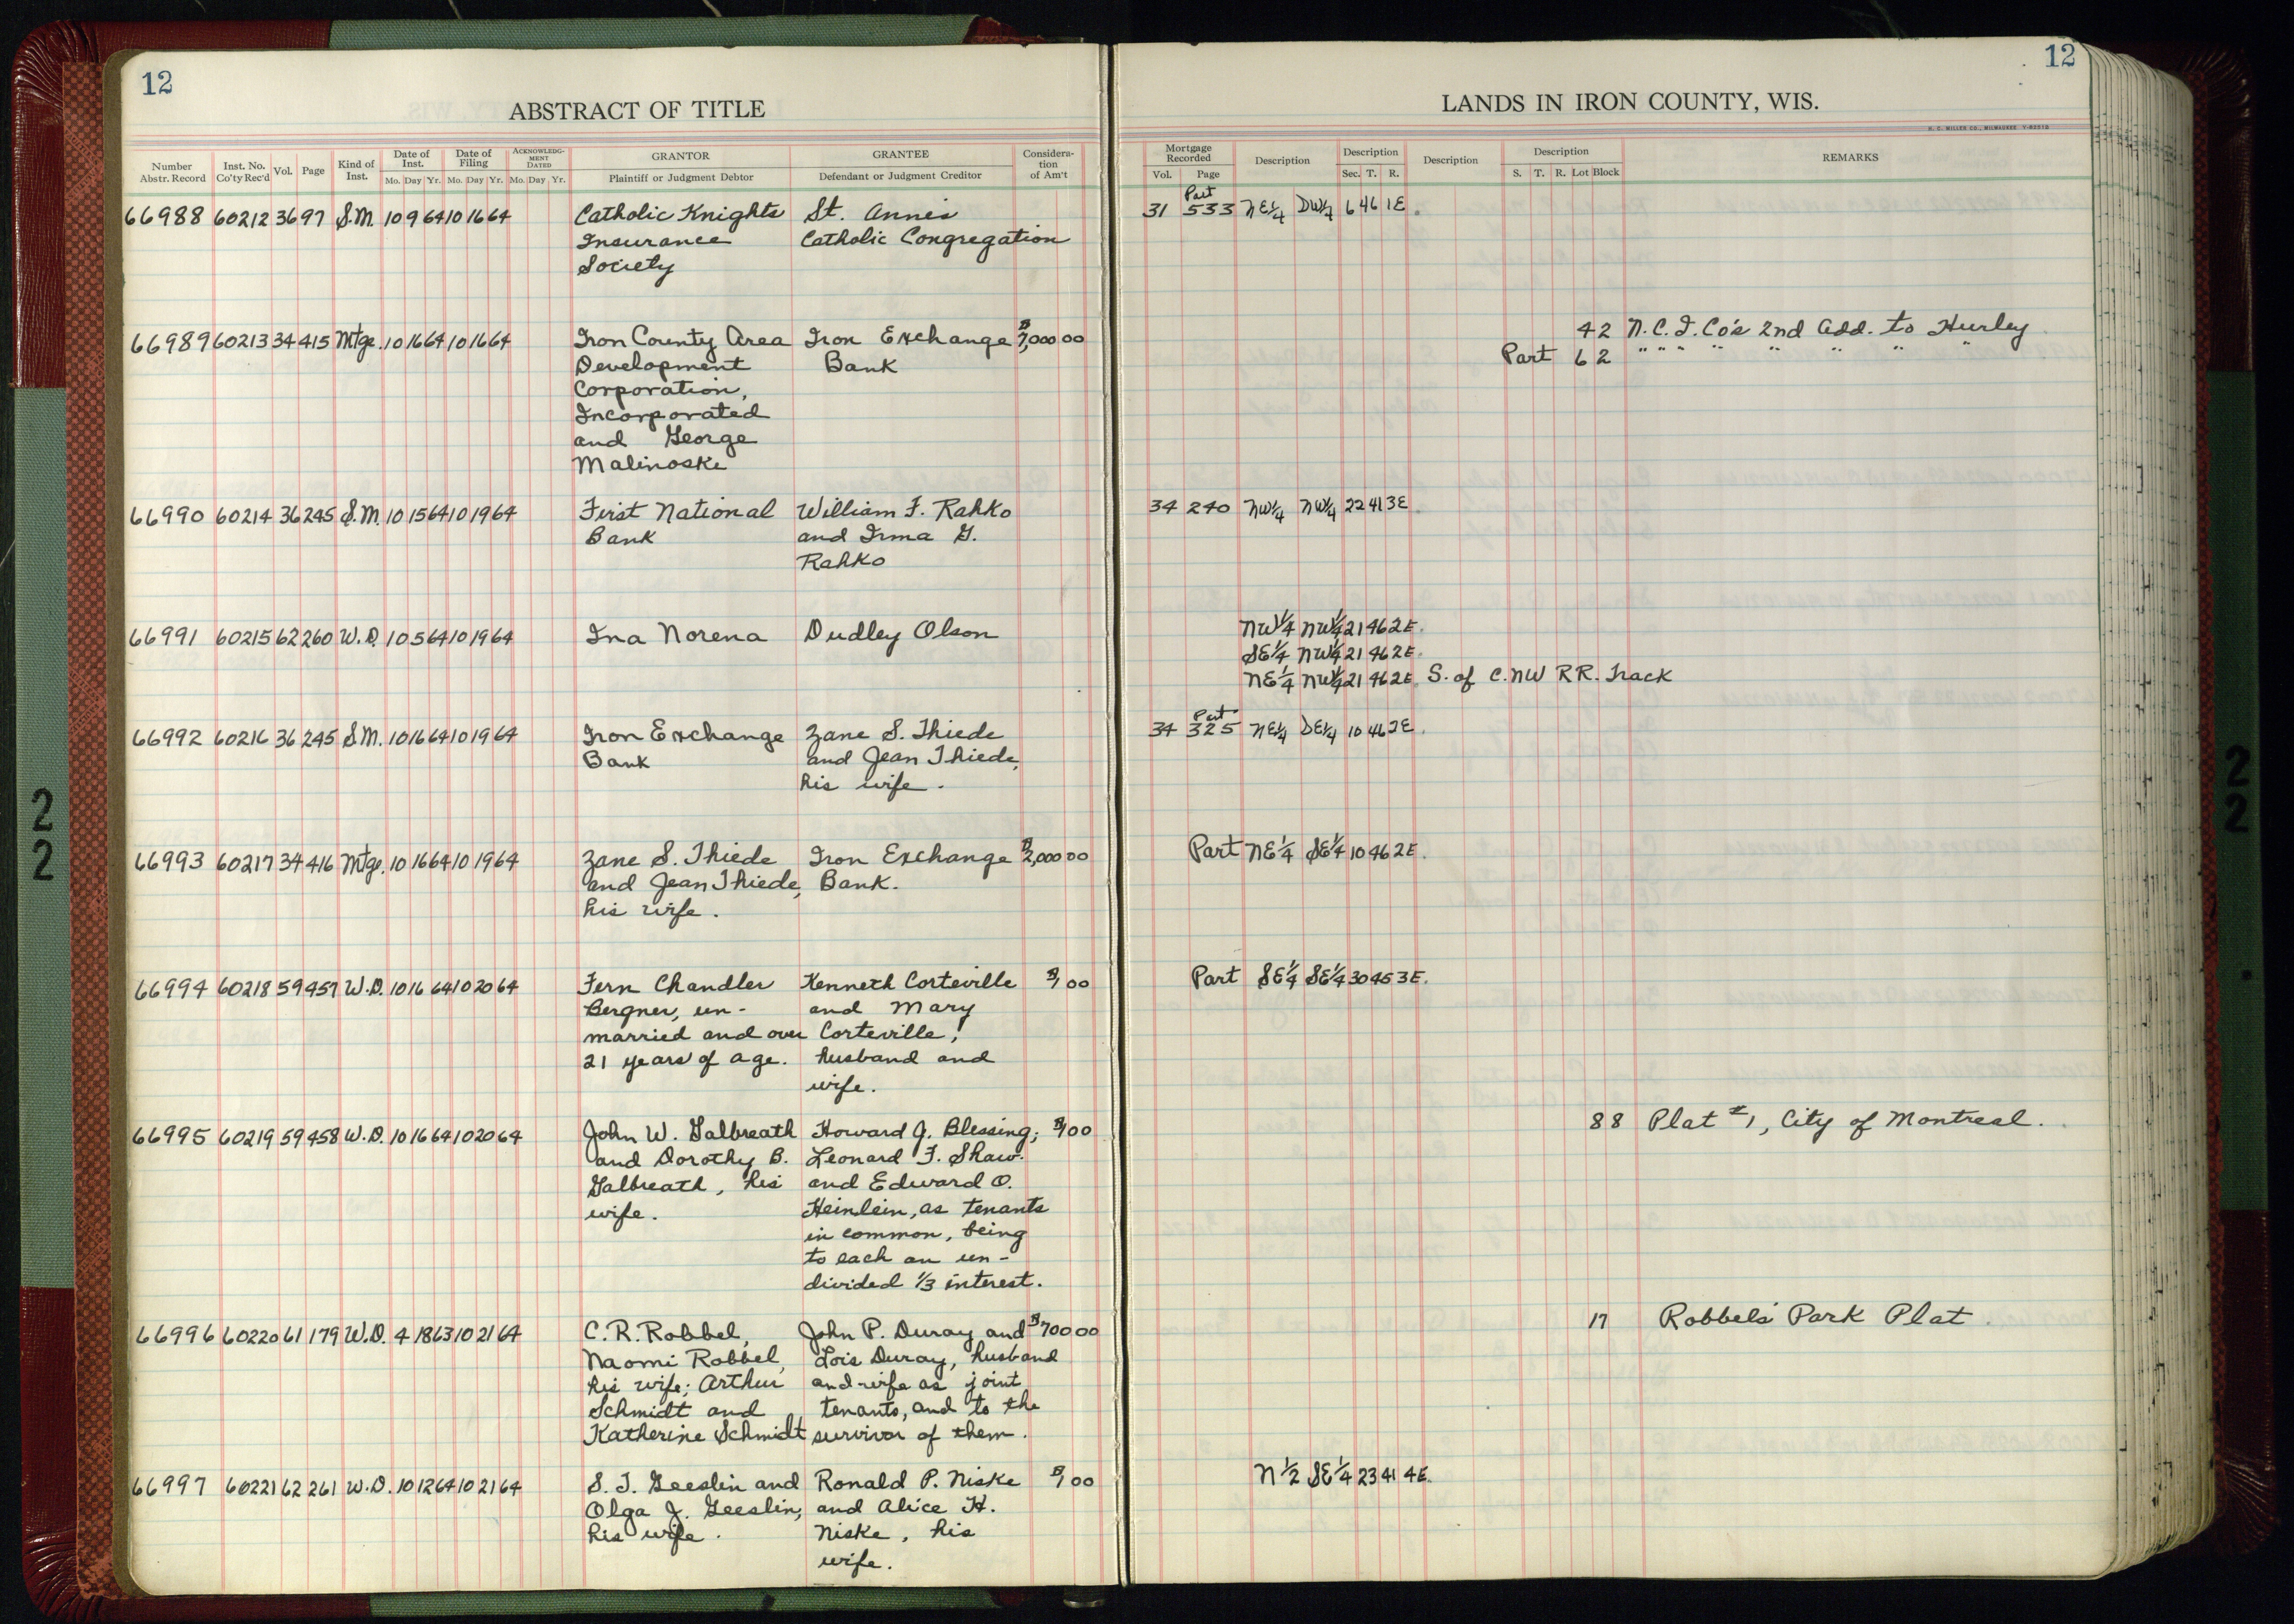 12
ABSTRACT OF TITLE
Number Abstr. Record Inst. No. Co'ty Rec'd Vol. Page Kind of Inst. Date of Inst. Mo. Day Yr. Date of Filing Mo. Day Yr. ACKNOWLEDGMENT DATED Mo. Day Yr. GRANTOR Plaintiff or Judgment Debtor GRANTEE Defendant or Judgment Creditor Consideration of Am't
66988 60212 36 97 S.M. 10 9 64 10 16 64 Catholic Knights St. Anne's
Insurance Catholic Congregation
Society
66989 60213 34 415 Mtge. 10 16 64 10 16 64 Iron County Area Iron Exchange $7,000 00
Development Bank
Corporation,
Incorporated
and George
Malinoske
66990 60214 36 245 S.M. 10 15 64 10 19 64 First National William F. Rahko
Bank and Irma G.
Rahko
66991 60215 62 260 W.D. 10 5 64 10 19 64 Ina Norena Dudley Olson
66992 60216 36 245 S.M. 10 16 64 10 19 64 Iron Exchange Zane S. Thiede
Bank and Jean Thiede,
his wife.
66993 60217 34 416 Mtge. 10 16 64 10 19 64 Zane S. Thiede Iron Exchange $2,000 00
and Jean Thiede, Bank.
his wife.
66994 60218 59 457 W.D. 10 16 64 10 20 64 Fern Chandler Kenneth Corteville $1 00
Bergner, un- and Mary
married and over Corteville,
21 years of age. husband and
wife.
66995 60219 59 458 W.D. 10 16 64 10 20 64 John W. Galbreath Howard J. Blessing; $1 00
and Dorothy B. Leonard F. Shaw
Galbreath, his and Edward O.
wife. Heinlein, as tenants
in common, being
to each an un-
divided 1/3 interest.
66996 60220 61 179 W.D. 4 18 63 10 21 64 C.R. Robbel, John P. Duray and $700 00
Naomi Robbel, Lois Duray, husband
his wife; Arthur and wife as joint
Schmidt and tenants, and to the
Katherine Schmidt survivor of them.
66997 60221 62 261 W.D. 10 12 64 10 21 64 S. J. Geeslin and Ronald P. Niske $1 00
Olga J. Geeslin, and Alice H.
his wife. Niske, his
wife.
12
LANDS IN IRON COUNTY, WIS.
H. C. MILLER CO., MILWAUKEE
Mortgage Recorded Vol. Page Description Description Sec. T. R. Description Description S. T. R. Lot Block REMARKS
Part
31 533 NE¼ SW¼ 6 46 1E.
4 2 N.C.I.Co's 2nd Add. to Hurley
Part 6 2 " " " " " " " "
34 240 NW¼ NW¼ 22 41 3E
NW¼ NW¼ 21 46 2E.
SE¼ NW¼ 21 46 2E.
NE¼ NW¼ 21 46 2E. S. of C. NW RR. Track
Part
34 325 NE¼ SE¼ 10 46 2E.
Part NE¼ SE¼ 10 46 2E.
Part SE¼ SE¼ 30 45 3E.
88 Plat #1, City of Montreal.
17 Robbel's Park Plat.
N½ SE¼ 23 41 4E.
22
22